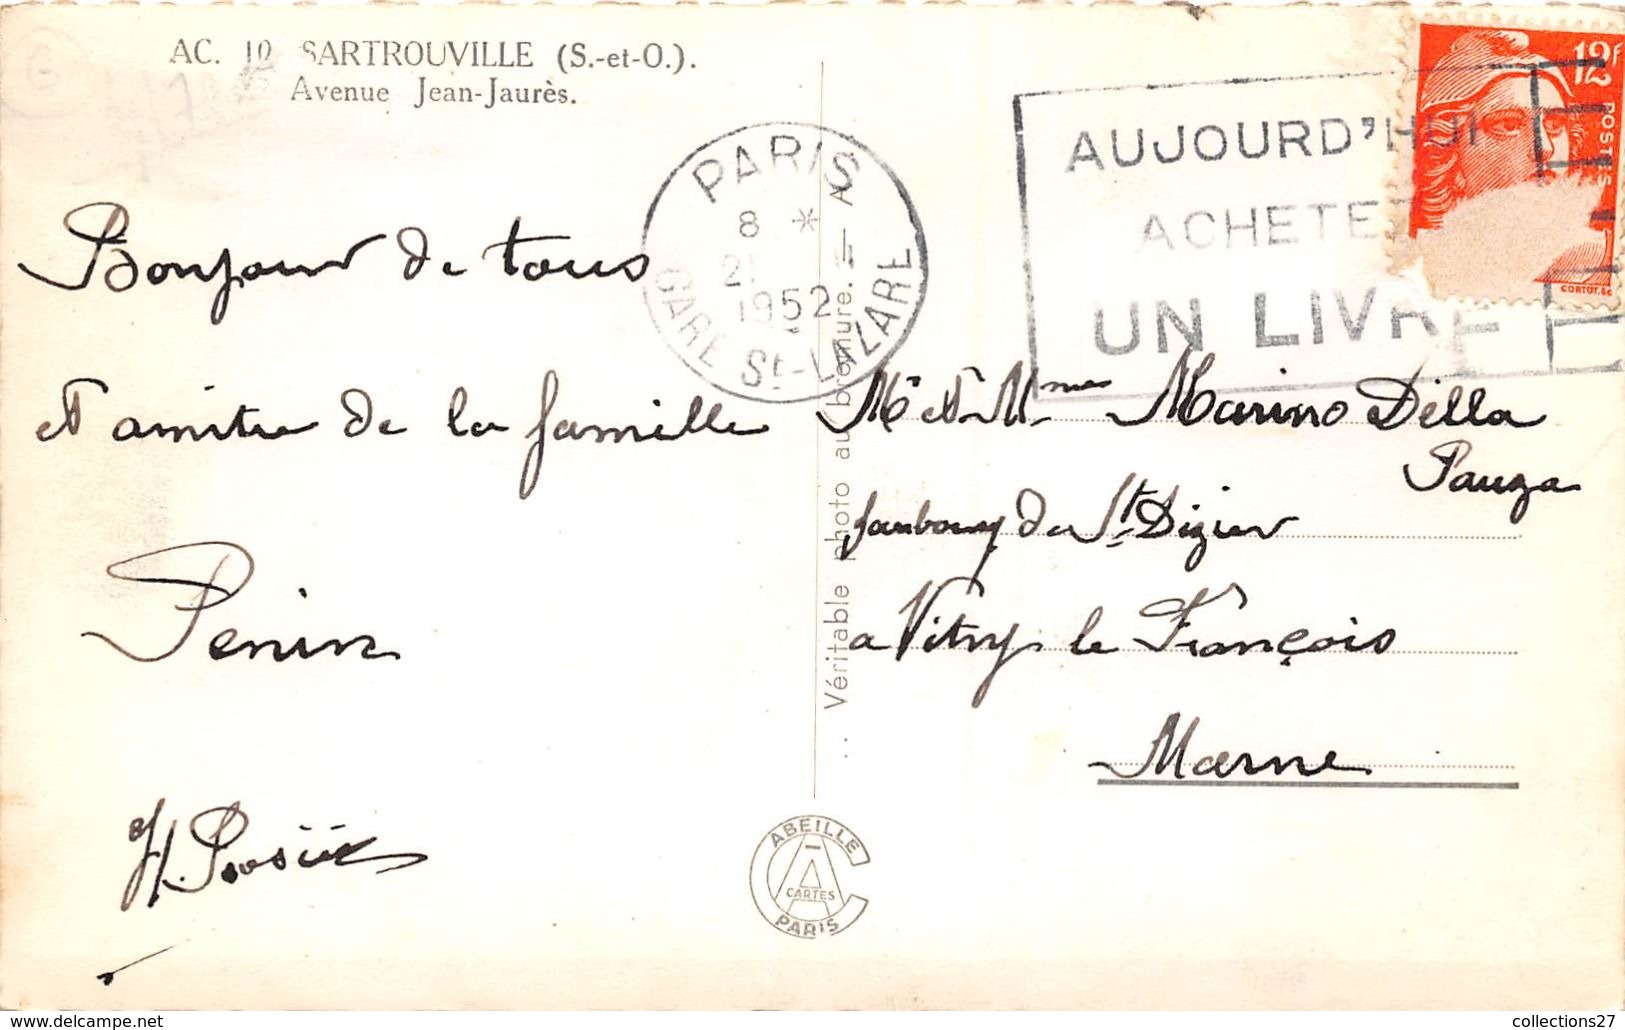 AC. 10 SARTROUVILLE (S.-et-O.).
Avenue Jean-Jaurès.
PARIS
8 *
21
1952
GARE St-LAZARE
AUJOURD'HUI
ACHETEZ
UN LIVRE
12F
POSTES
CORTOT.Sc
Bonjour de tous
et amitie de la famille
Penin
H.
Mr et Mme Marino Della
Pauza
faubourg de St Dizier
a Vitry le François
Marne
.. Véritable photo au bromure.
A
ABEILLE
CARTES
PARIS
www.delcampe.net
collections27